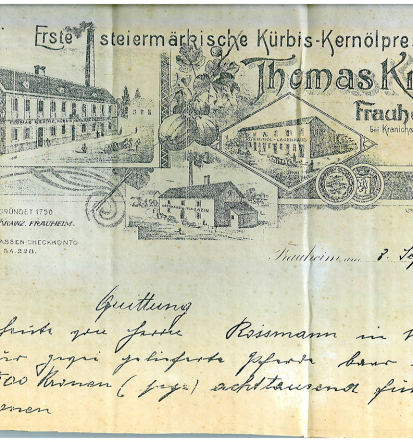 Erste steiermärkische Kürbis-Kernölpre
Thomas Kr
Frauhe
bei Kranichs
GRÜNDET 1790
KRAINZ, FRAUHEIM.
ASSEN-CHECKKONTO
Frauheim, am 8. Se
Quittung
heute von Herrn Rossmann in
für zwei gelieferte Pferde baar
500 Kronen ( sage ) achttausend fün
onen